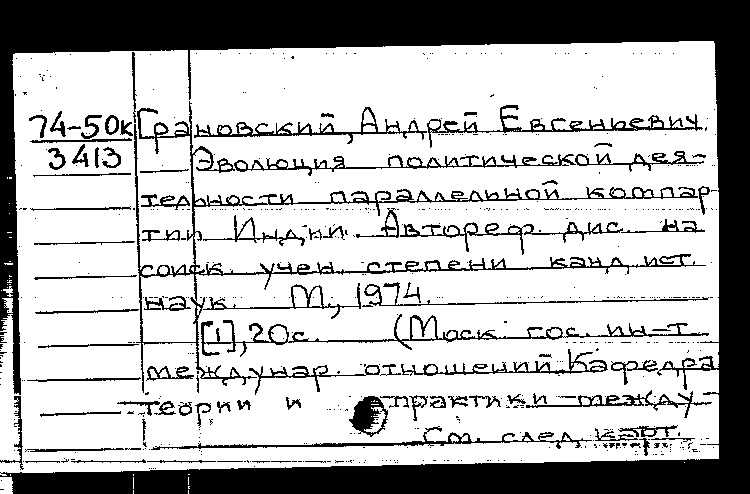 74-50к Грановский, Андрей Евгеньевич.
3413 Эволюция политической дея-
тельности параллельной компар
тии Индии. Автореф. дис. на
соиск. учен. степени канд. ист.
наук. М., 1974.
[1], 20с. (Моск. гос. ин-т
междунар. отношений. Кафедра
теории и практики между-
См. след. карт.